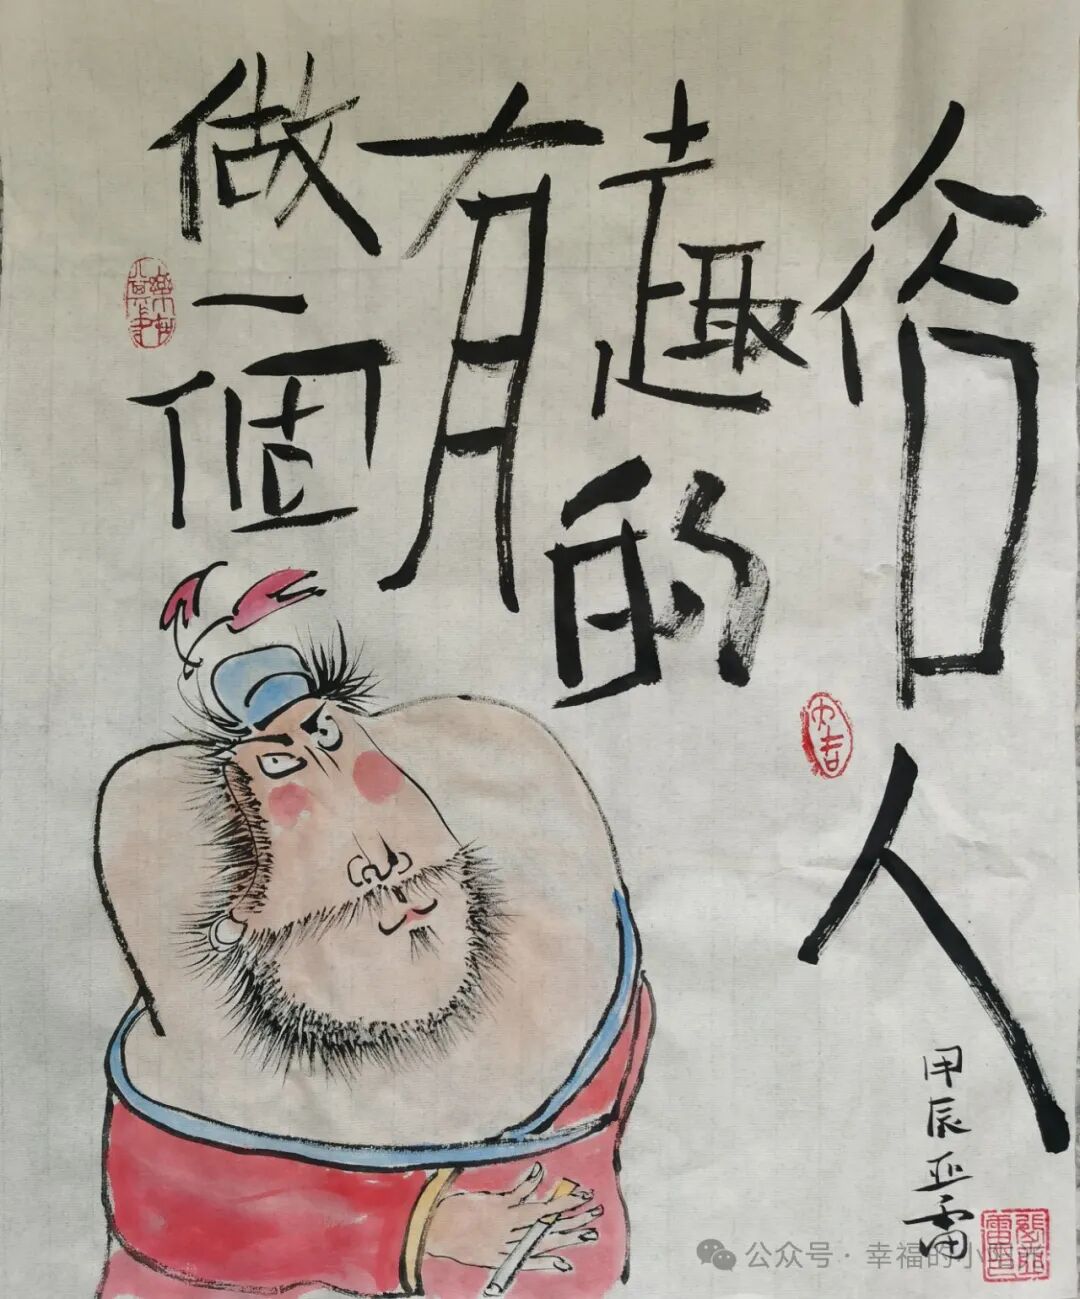 做一個
有
趣的
俗人
大吉
甲辰亚雷
公众号 · 幸福的小